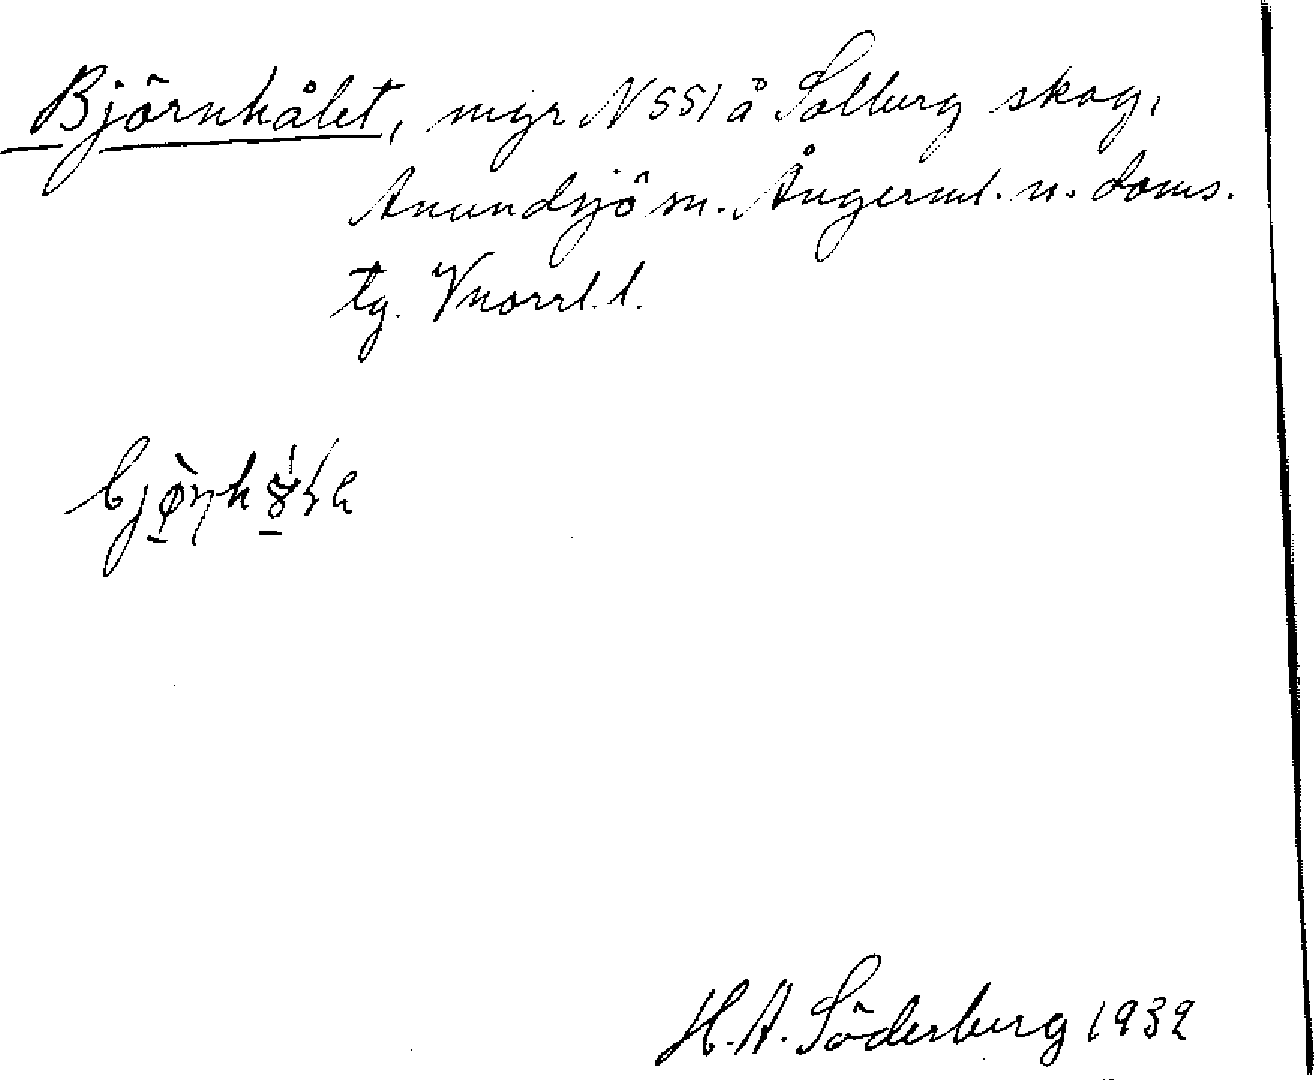 Björnhålet, myr N551 å Solberg skog,
Anundsjö sn. Ångerml. n. doms.
tg. Vnorrl. l.
H. A. Söderberg 1932